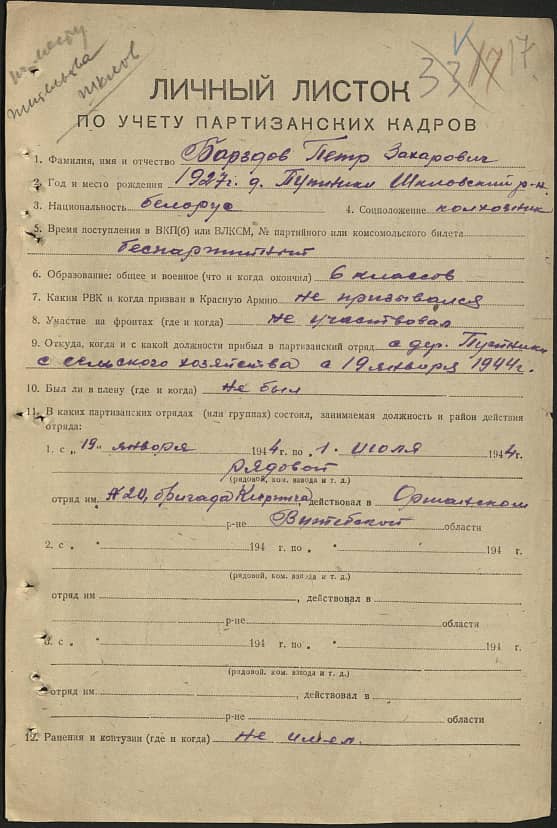 по месту
жительства
Шклов
33 17 17.
ЛИЧНЫЙ ЛИСТОК
ПО УЧЕТУ ПАРТИЗАНСКИХ КАДРОВ
1. Фамилия, имя и отчество Барздов Петр Захарович
2. Год и место рождения 1927г. д. Путники Шкловский р-н.
3. Национальность белорус 4. Соцположение колхозник
5. Время поступления в ВКП(б) или ВЛКСМ, № партийного или комсомольского билета
беспартийный
6. Образование: общее и военное (что и когда окончил) 6 классов
7. Каким РВК и когда призван в Красную Армию не призывался
8. Участие на фронтах (где и когда) не участвовал
9. Откуда, когда и с какой должности прибыл в партизанский отряд с дер. Путники
с сельского хозяйства с 19 января 1944г.
10. Был ли в плену (где и когда) не был
11. В каких партизанских отрядах (или группах) состоял, занимаемая должность и район действия
отряда:
1. с „19" января 1944 г. по „1. июля 1944 г.
рядовой
(рядовой, ком. взвода и т. д.)
отряд им. №20, бригада действовал в Оршанском
р-не Витебской области
2. с „ " 194 г. по „ " 194 г.
(рядовой, ком. взвода и т. д.)
отряд им , действовал в
р-не области
3. с „ " 194 г. по „ " 194 г.
(рядовой, ком. взвода и т. д.)
отряд им. , действовал в
р-не области
12. Ранения и контузии (где и когда) не имел.